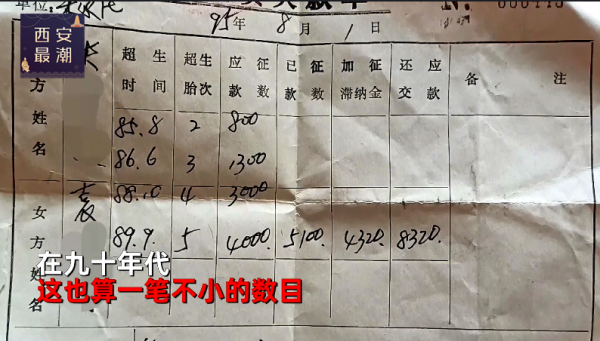 单位:
95年 8月 1日
000113
西安
最潮
男方姓名
超生时间
超生胎次
应征款数
已征款数
加征滞纳金
还应交款
备注
85.8 2 800
86.6 3 1300
88.10 4 3000
女方姓名
袁
89.9. 5 4000. 5100. 4320. 8320.
在九十年代
这也算一笔不小的数目